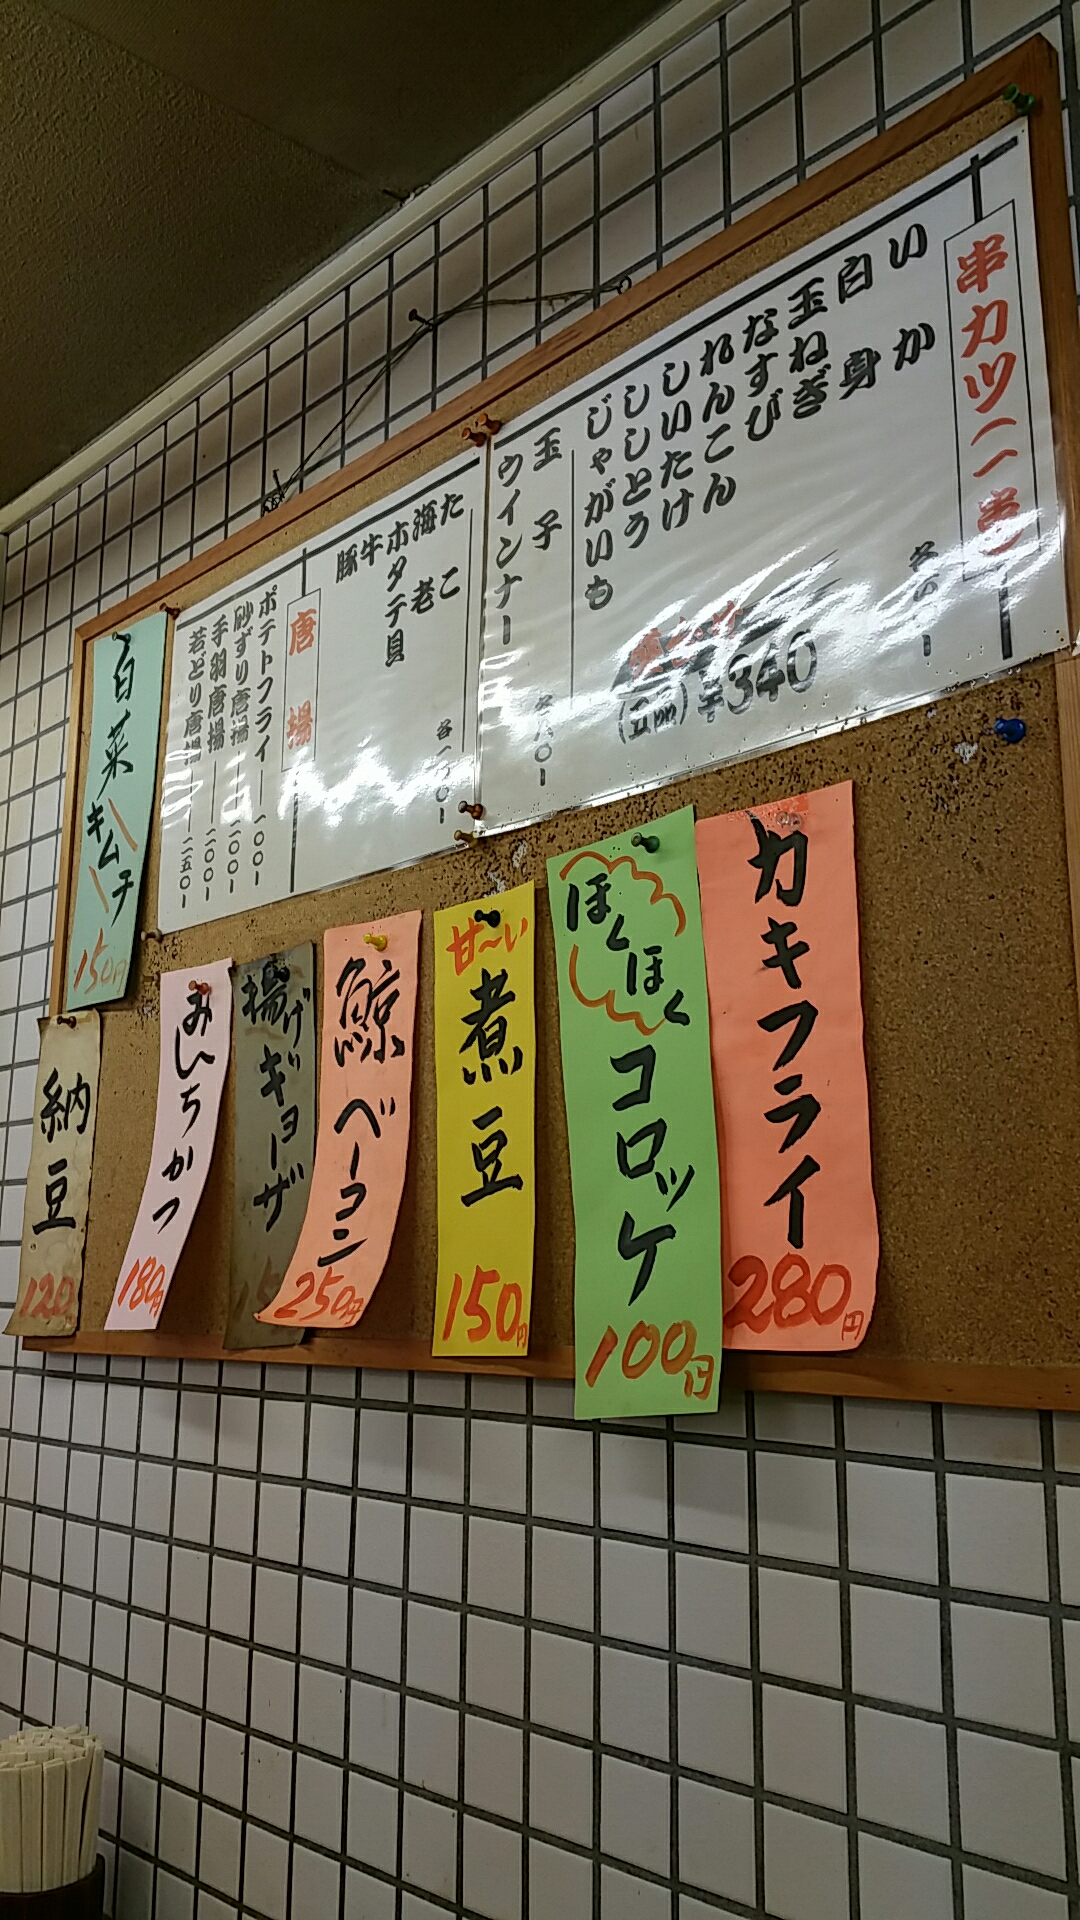 串カツ(一串)
いか
白身
玉ねぎ
なすび
れんこん
しいたけ
ししとう
じゃがいも
各六〇-
(五品)¥340
玉子
ウインナー
各八〇-
たこ
海老
ホタテ貝
牛
豚
唐揚
ポテトフライ-一〇〇-
砂ずり唐揚-二〇〇-
手羽唐揚-二〇〇-
若どり唐揚-二五〇-
カキフライ
280円
ほくほく
コロッケ
100円
甘〜い
煮豆
150円
鯨ベーコン
250円
揚げギョーザ
みんちかつ
180円
白菜キムチ
150円
納豆
120